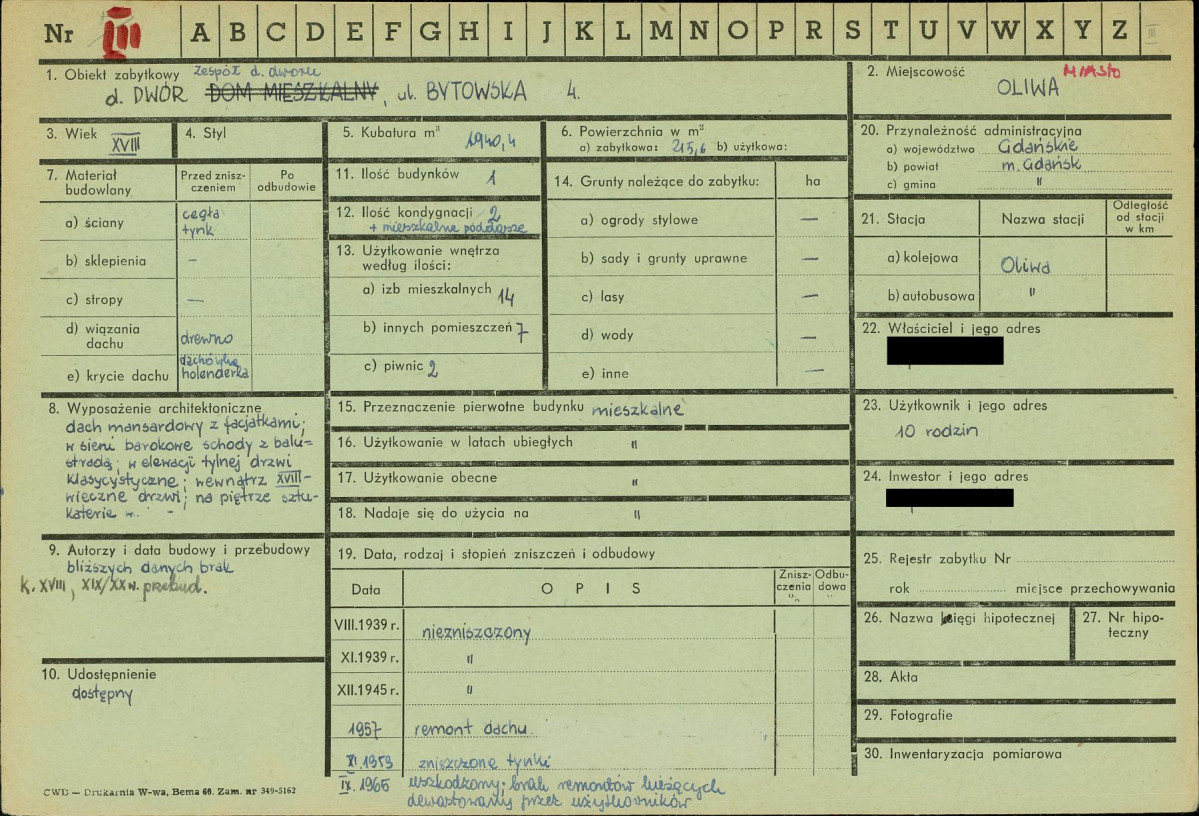 Nr III A B C D E F G H I J K L M N O P R S T U V W X Y Z
1. Obiekt zabytkowy zespół d. dworu
d. DWÓR DOM MIESZKALNY, ul. BYTOWSKA 4.
2. Miejscowość MIASTO
OLIWA
3. Wiek XVIII
4. Styl
5. Kubatura m³ 1940,4
6. Powierzchnia w m²
a) zabytkowa: 215,6 b) użytkowa:
20. Przynależność administracyjna
a) województwo Gdańskie
b) powiat m. Gdańsk
c) gmina "
7. Materiał budowlany
Przed zniszczeniem
Po odbudowie
a) ściany cegła
tynk
b) sklepienia –
c) stropy –
d) wiązania
dachu drewno
e) krycie dachu dachówka
holenderka
11. Ilość budynków 1
12. Ilość kondygnacji 2
+ mieszkalne poddasze
13. Użytkowanie wnętrza
według ilości:
a) izb mieszkalnych 14
b) innych pomieszczeń 7
c) piwnic 2
14. Grunty należące do zabytku: ha
a) ogrody stylowe –
b) sady i grunty uprawne –
c) lasy –
d) wody –
e) inne –
21. Stacja
Nazwa stacji
Odległość
od stacji
w km
a) kolejowa Oliwa
b) autobusowa "
22. Właściciel i jego adres
8. Wyposażenie architektoniczne
dach mansardowy z facjatkami;
w sieni barokowe schody z balu=
stradą; w elewacji tylnej drzwi
klasycystyczne; wewnątrz XVIII-
wieczne drzwi; na piętrze sztu-
katerie w. - " -
15. Przeznaczenie pierwotne budynku mieszkalne
16. Użytkowanie w latach ubiegłych "
17. Użytkowanie obecne "
18. Nadaje się do użycia na "
23. Użytkownik i jego adres
10 rodzin
24. Inwestor i jego adres
9. Autorzy i data budowy i przebudowy
bliższych danych brak
k. XVIII, XIX/XX w. przebud.
19. Data, rodzaj i stopień zniszczeń i odbudowy
Data
O P I S
Zniszczenia %
Odbudowa "
VIII.1939 r. niezniszczony
XI.1939 r. "
XII.1945 r. "
1957 remont dachu
XI.1959 zniszczone tynki
IX.1965 uszkodzony; brak remontów bieżących
dewastowany przez użytkowników
25. Rejestr zabytku Nr
rok miejsce przechowywania
26. Nazwa księgi hipotecznej
27. Nr hipo-
teczny
10. Udostępnienie
dostępny
28. Akta
29. Fotografie
30. Inwentaryzacja pomiarowa
CWD — Drukarnia W-wa, Bema 60. Zam. nr 349-5162